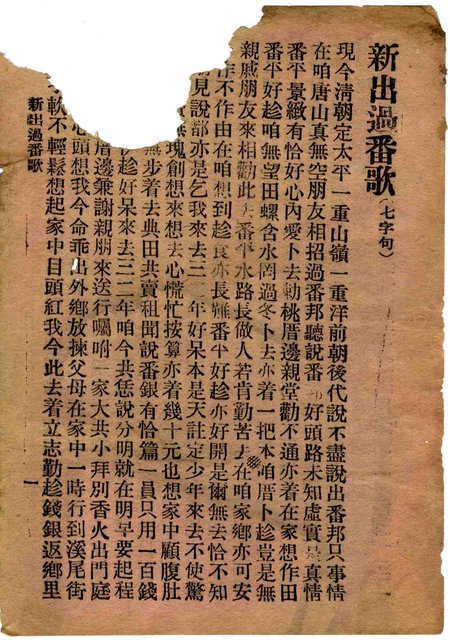 新出過番歌(七字句)
現今清朝定太平一重山嶺一重洋前朝後代說不盡說出番邦只事情
在咱唐山真無空朋友相招過番邦聽說番 好頭路未知虛實 真情
番平景緻有恰好心內愛卜去勅桃厝邊親堂勸不通亦着在家想作田
番平好趁咱無望田螺含水罔過冬卜去亦着一把本咱厝卜趁豈是無
親戚朋友來相勸此去番平水路長做人若肯勤苦 在咱家鄉亦可安
作不作由在咱想到趁食亦長難番平好趁亦好開是爾無去恰不知
見說部亦是乞我來去三 年好呆本是天註定少年來去不使驚
無塊創想來想去心慌忙按算亦着幾十元也想家中顧腹肚
無步着去典田共賣租聞說番銀有恰篇一員只用一百錢
趁好呆來去三二年咱今共恁說分明就在明早要起程
厝邊兼謝親朋來送行囑咐一家大共小拜別香火出門庭
心頭想我今命乖出外鄉放揀父母在家中一時行到溪尾街
軟不輕鬆想起家中目頭紅我今此去着立志勤趁錢銀返鄉里
新出過番歌
一